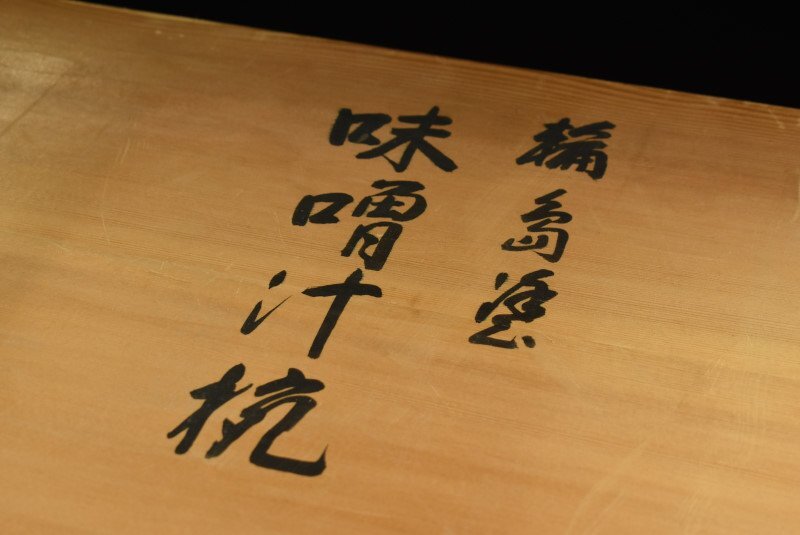 輪島塗
味噌汁椀